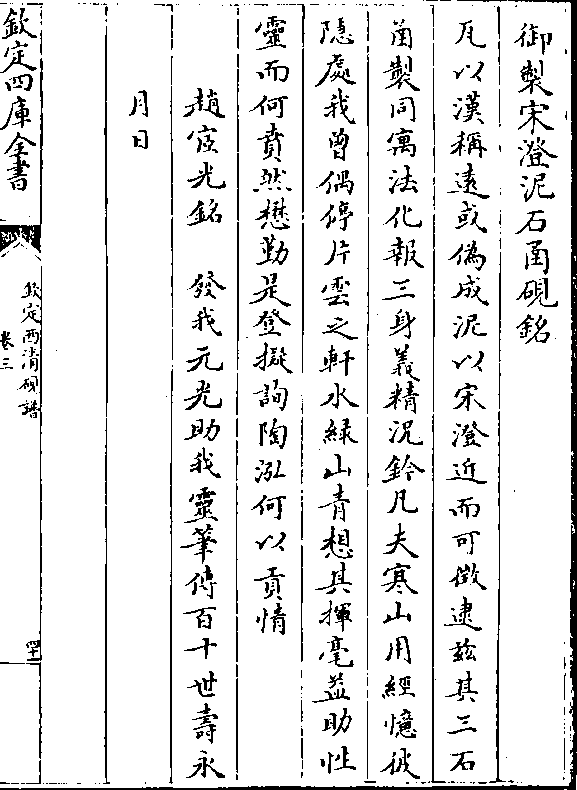 御製宋澄泥石函硯銘
瓦以漢稱遠或偽成泥以宋澄近而可徵逮玆其三石
函製同寓法化報三身義精況鈐凡夫寒山用經憶彼
隱處我曾偶停片雲之軒水緑山青想其揮毫益助性
靈而何賁然懋勤是登擬詢陶泓何以貢情
趙宧光銘　發我元光助我靈筆傳百十世壽永
月日
欽定四庫全書
欽定西清硯譜
卷三